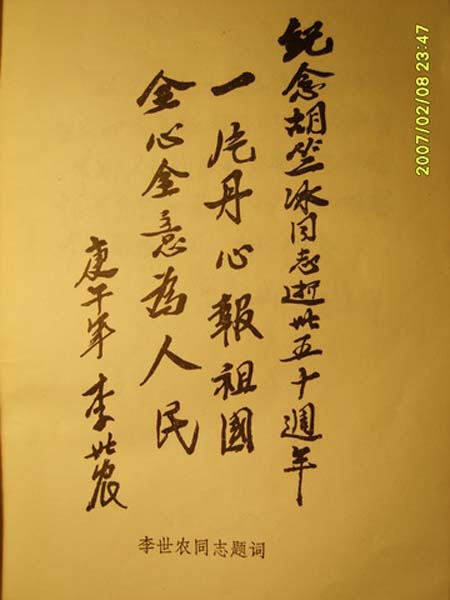 紀念胡竺冰同志逝世五十週年
一片丹心報祖國
全心全意为人民
庚午年 李世农
李世农同志题词
2007/02/08 23:47